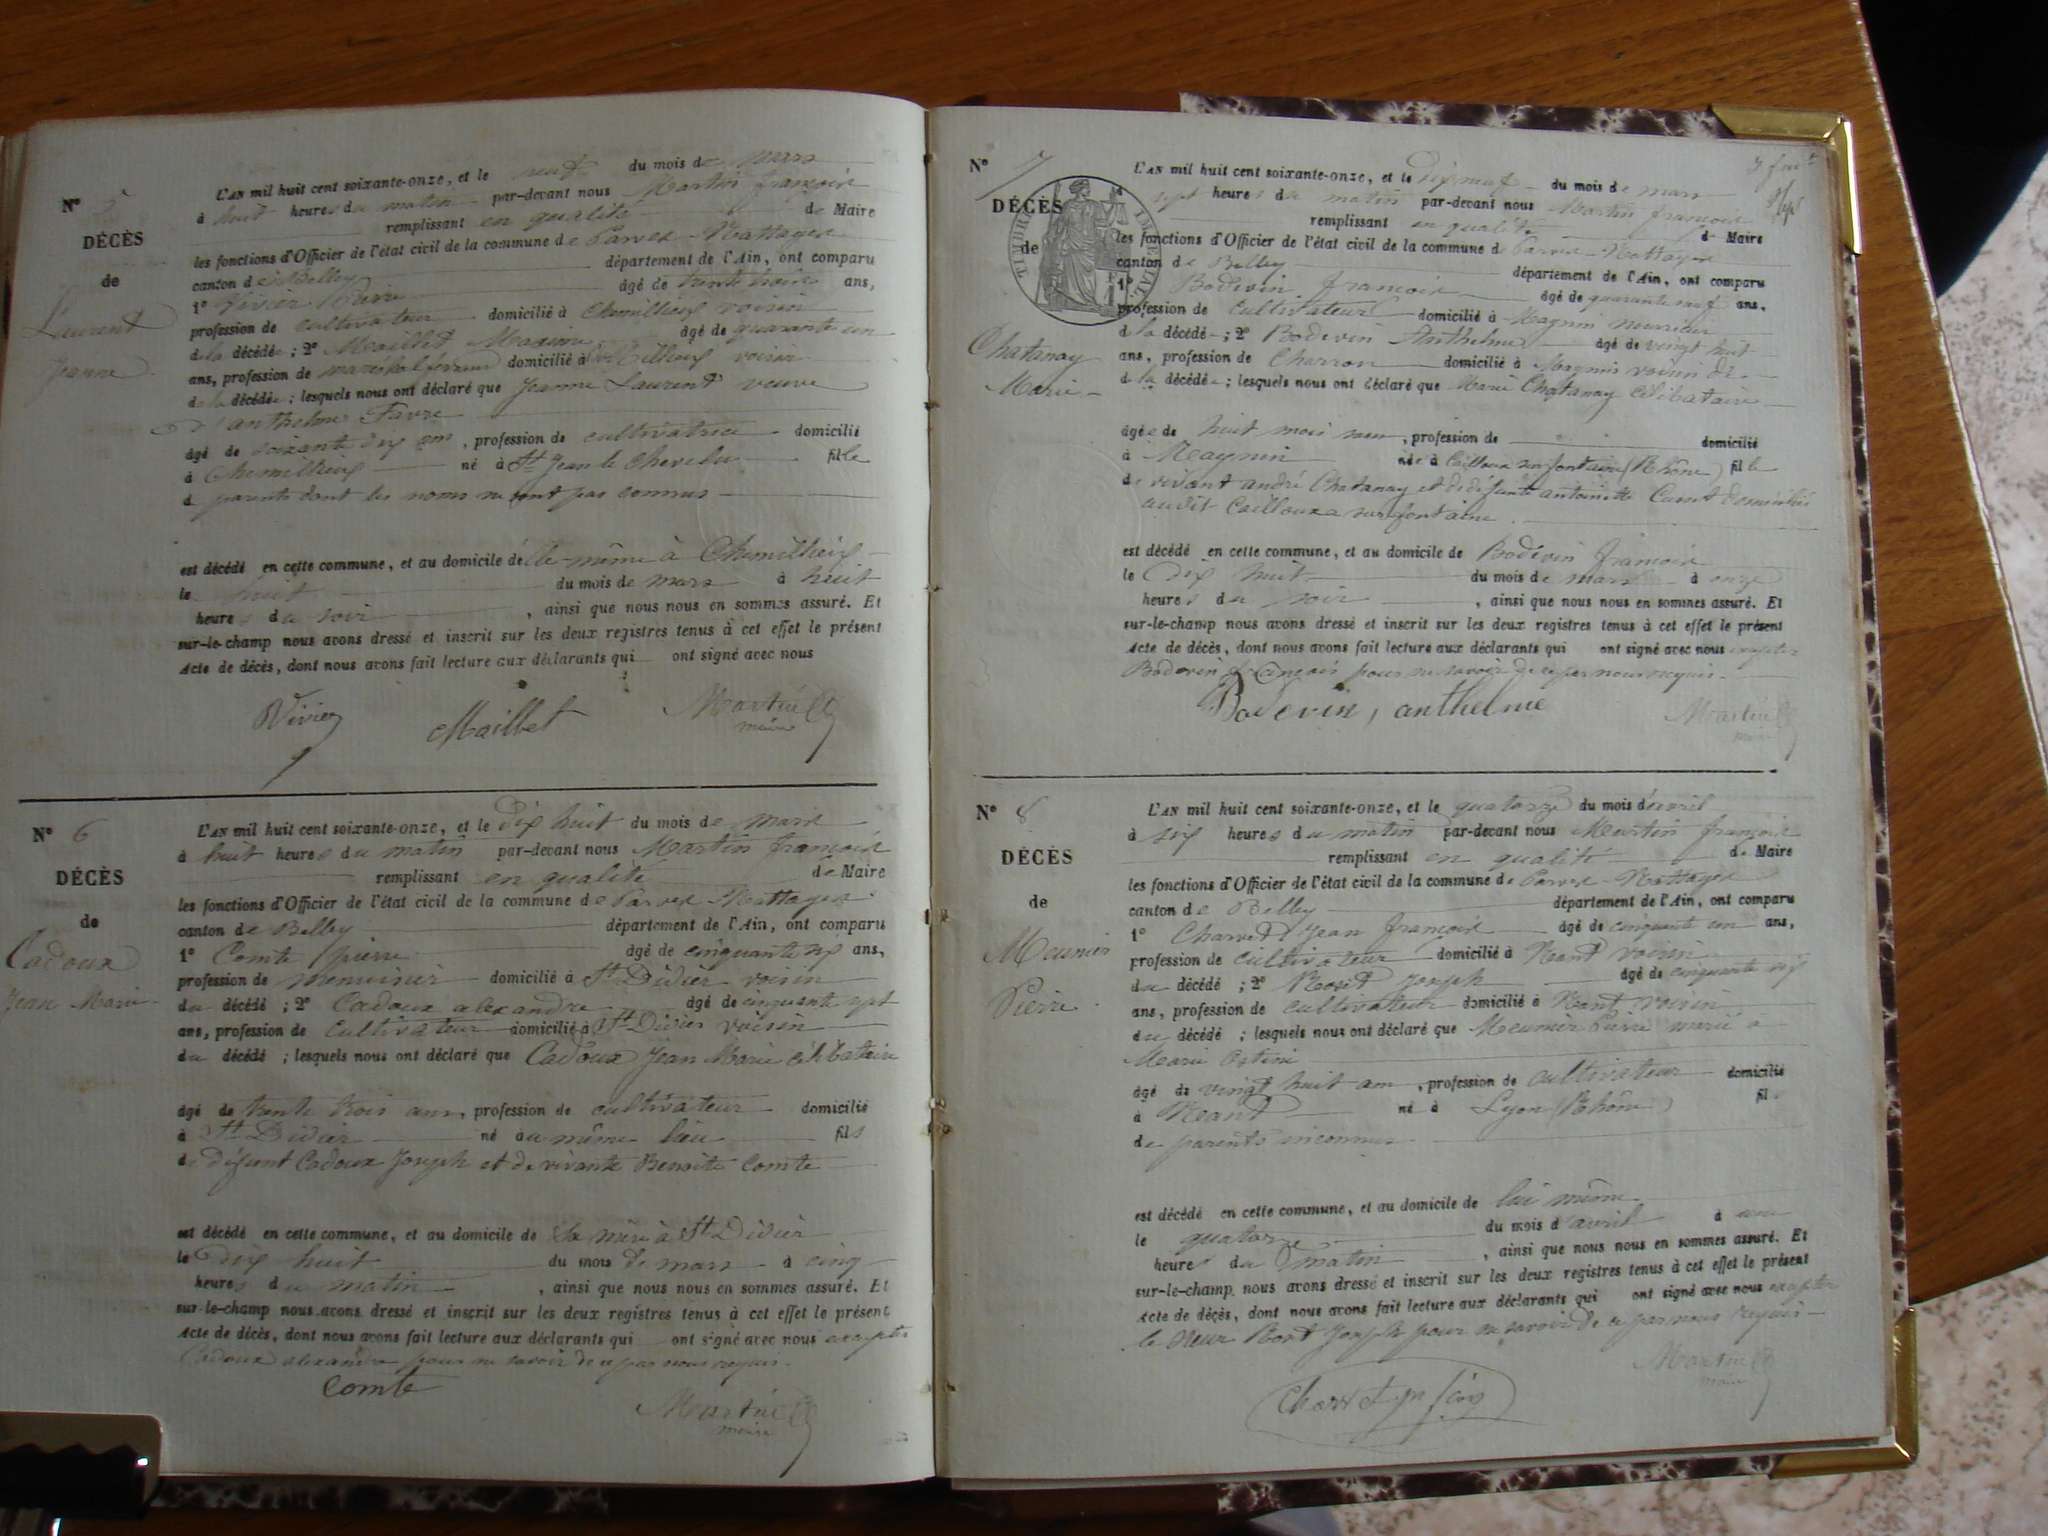 N° 5
DÉCÈS
de
Laurent
Jeanne
L'AN mil huit cent soixante-onze, et le neuf du mois de mars
à huit heures du matin par-devant nous Martin françois
remplissant en qualité de Maire
les fonctions d'Officier de l'état civil de la commune de Parves-Nattages
canton de Belley département de l'Ain, ont comparu
1° Vivier Pierre âgé de trente trois ans,
profession de cultivateur domicilié à Chemillieux voisin
de la décédée ; 2° Maillet Maxime âgé de quarante un
ans, profession de maréchal ferrant domicilié à Chemillieux voisin
de la décédée ; lesquels nous ont déclaré que Jeanne Laurent veuve
d'anthelme Favre
âgé de soixante dix ans, profession de cultivatrice domicilié
à Chemillieux né à St Jean le Chevelu fille
de parents dont les noms ne sont pas connus
est décédé en cette commune, et au domicile d'elle-même à Chemillieux
le huit du mois de mars à huit
heures du soir , ainsi que nous nous en sommes assuré. Et
sur-le-champ nous avons dressé et inscrit sur les deux registres tenus à cet effet le présent
Acte de décès, dont nous avons fait lecture aux déclarants qui ont signé avec nous
Vivier Maillet Martin
maire
N° 6
DÉCÈS
de
Cadoux
Jean Marie
L'AN mil huit cent soixante-onze, et le dix huit du mois de mars
à huit heures du matin par-devant nous Martin françois
remplissant en qualité de Maire
les fonctions d'Officier de l'état civil de la commune de Parves-Nattages
canton de Belley département de l'Ain, ont comparu
1° Comte pierre âgé de cinquante six ans,
profession de menuisier domicilié à St Didier voisin
du décédé ; 2° Cadoux alexandre âgé de cinquante sept
ans, profession de cultivateur domicilié à St Didier voisin
du décédé ; lesquels nous ont déclaré que Cadoux Jean Marie célibataire
âgé de trente trois ans, profession de cultivateur domicilié
à St Didier né au même lieu fils
de défunt Cadoux Joseph et de vivante Benoite Comte
est décédé en cette commune, et au domicile de sa mère à St Didier
le dix huit du mois de mars à cinq
heures du matin , ainsi que nous nous en sommes assuré. Et
sur-le-champ nous avons dressé et inscrit sur les deux registres tenus à cet effet le présent
Acte de décès, dont nous avons fait lecture aux déclarants qui ont signé avec nous excepter
Cadoux alexandre pour ne savoir de ce par nous requis.
Comte
Martin
maire
N° 7
DÉCÈS
de
TIMBRE IMPÉRIAL
Chatanay
Marie
L'AN mil huit cent soixante-onze, et le dix neuf du mois de mars
sept heures du matin par-devant nous Martin françois
remplissant en qualité de Maire
les fonctions d'Officier de l'état civil de la commune de Parves-Nattages
canton de Belley département de l'Ain, ont comparu
1° Bodevin françois âgé de quarante neuf ans,
profession de cultivateur domicilié à Magnin nourricier
de la décédée ; 2° Bodevin Anthelme âgé de vingt huit
ans, profession de Charron domicilié à Magnin voisin de
de la décédée ; lesquels nous ont déclaré que Marie Chatanay célibataire
âgée de huit mois , profession de domicilié
à Magnin née à Cailloux sur fontaine (Rhône) fille
de vivant andré Chatanay et de défunte antoinette domiciliés
audit Cailloux sur fontaine.
est décédé en cette commune, et au domicile de Bodevin françois
le dix huit du mois de mars à onze
heures du soir , ainsi que nous nous en sommes assuré. Et
sur-le-champ nous avons dressé et inscrit sur les deux registres tenus à cet effet le présent
Acte de décès, dont nous avons fait lecture aux déclarants qui ont signé avec nous excepter
Bodevin françois pour ne savoir de ce par nous requis.
Bodevin, anthelme Martin
maire
N° 8
DÉCÈS
de
Meunier
Pierre
L'AN mil huit cent soixante-onze, et le quatorze du mois d'avril
à six heures du matin par-devant nous Martin françois
remplissant en qualité de Maire
les fonctions d'Officier de l'état civil de la commune de Parves-Nattages
canton de Belley département de l'Ain, ont comparu
1° Charvet Jean françois âgé de cinquante un ans,
profession de cultivateur domicilié à Nant voisin
du décédé ; 2° Joseph âgé de cinquante six
ans, profession de cultivateur domicilié à Nant voisin
du décédé ; lesquels nous ont déclaré que Meunier Pierre marié à
Marie
âgé de vingt huit ans, profession de cultivateur domicilié
à Nant né à Lyon (Rhône) fils
de parents inconnus
est décédé en cette commune, et au domicile de lui même
le quatorze du mois d'avril à une
heures du matin , ainsi que nous nous en sommes assuré. Et
sur-le-champ nous avons dressé et inscrit sur les deux registres tenus à cet effet le présent
Acte de décès, dont nous avons fait lecture aux déclarants qui ont signé avec nous excepter
le sieur Joseph pour ne savoir de ce par nous requis
Martin
maire
Charvet